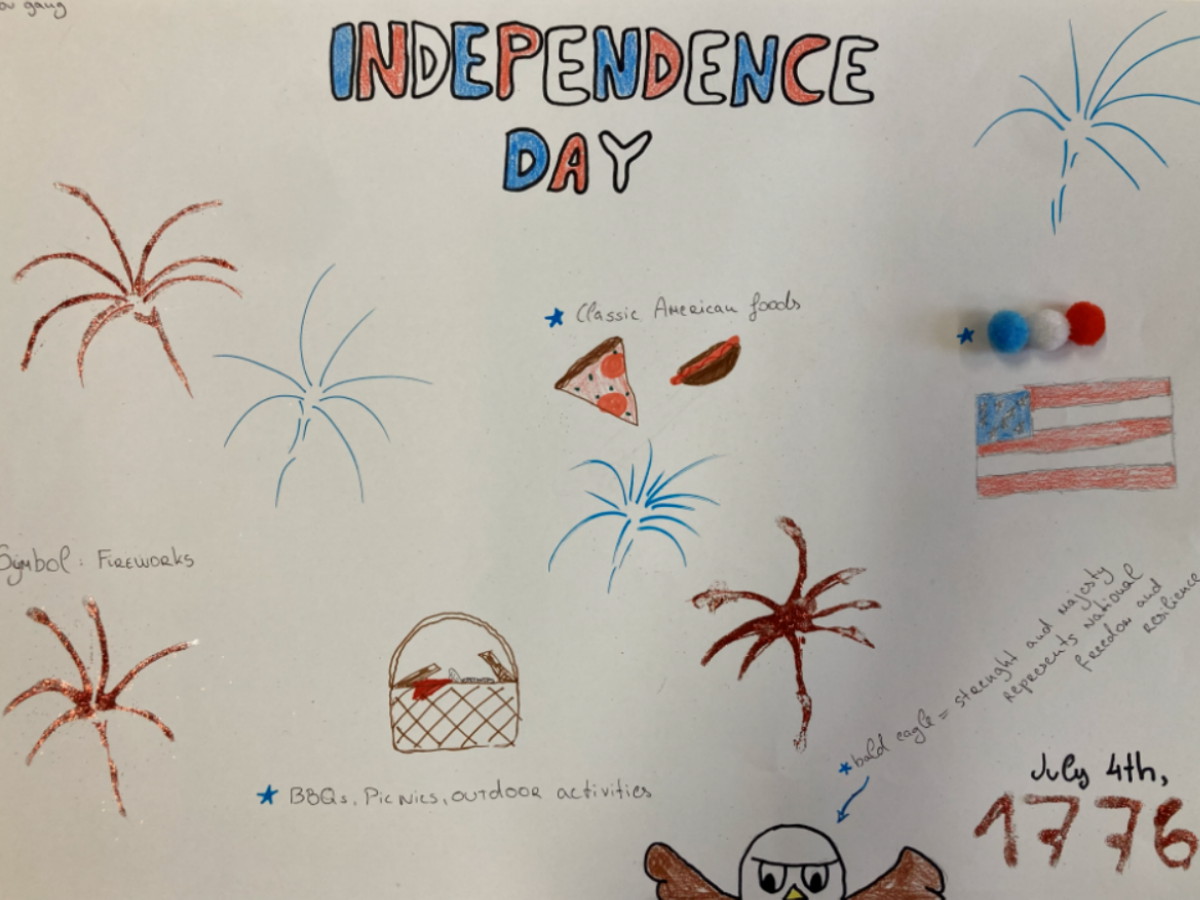 gang
INDEPENDENCE
DAY
Classic American foods
Symbol: Fireworks
BBQs, Picnics, outdoor activities
bald eagle = strenght and majesty
represents national
freedom and
resilience
July 4th,
1776